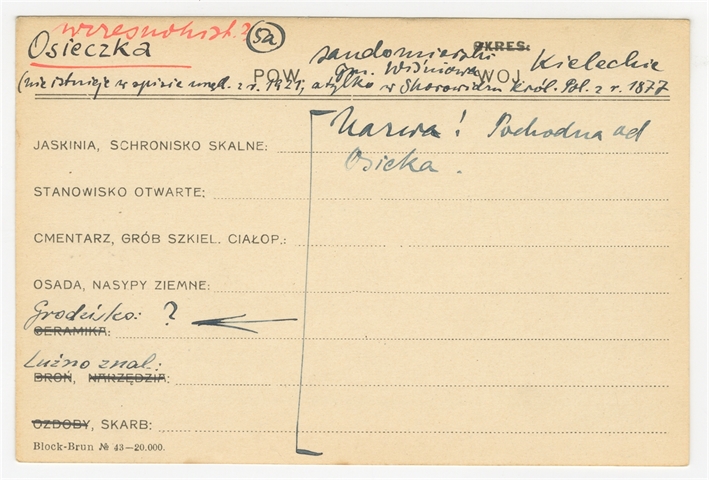 wczesnohist. ?
Osieczka 5a sandomierski OKRES:
POW. gm. Wiśniowa WOJ. Kieleckie
(nie istnieje w spisie urzęd. z r. 1921, a tylko w Skorowidzu Król. Pol. z r. 1877
Nazwa! Pochodna od
JASKINIA, SCHRONISKO SKALNE:
Osieka.
STANOWISKO OTWARTE:
CMENTARZ, GRÓB SZKIEL. CIAŁOP.:
OSADA, NASYPY ZIEMNE:
Grodzisko: ?
CERAMIKA:
Luźno znal.:
BROŃ, NARZĘDZIA:
OZDOBY, SKARB:
Block-Brun № 43—20.000.